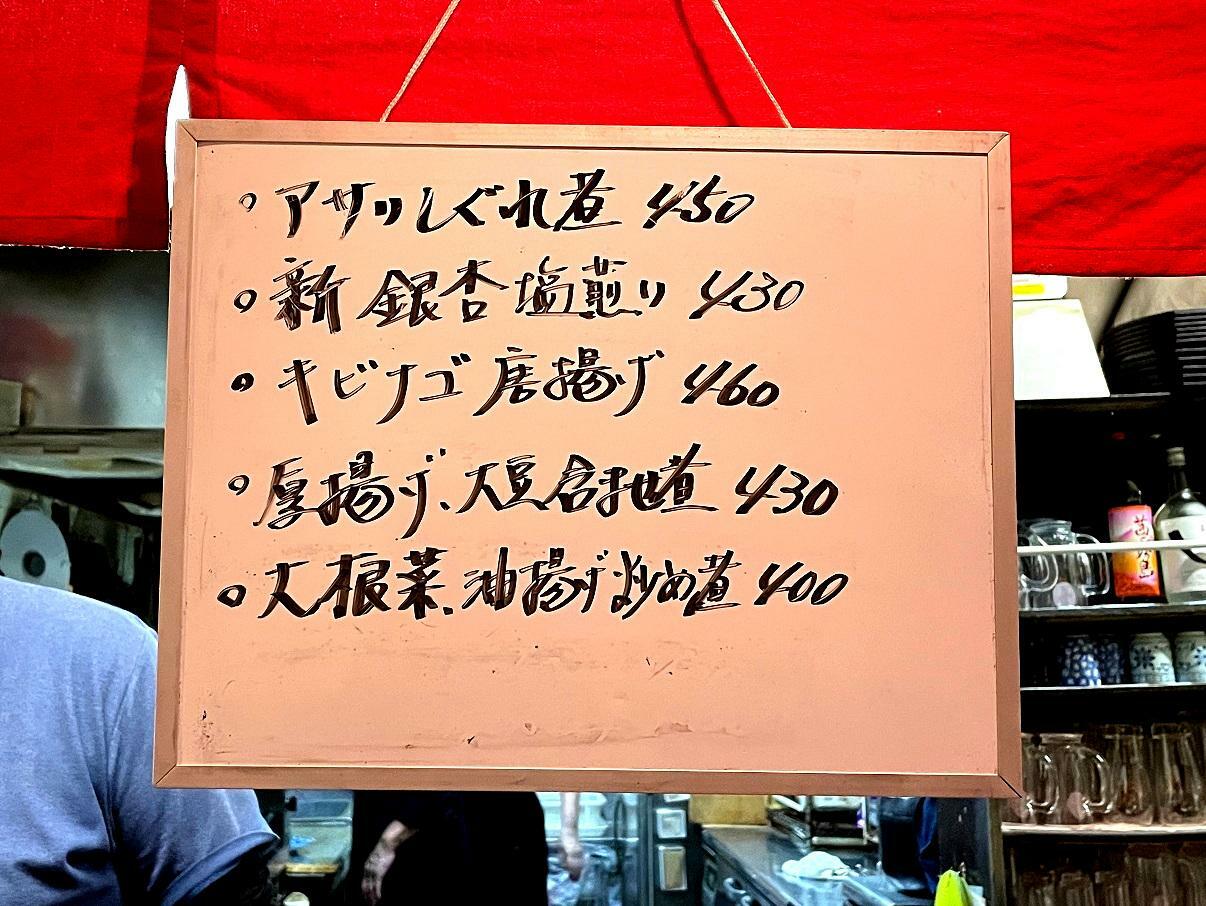 アサリしぐれ煮 450
新銀杏塩煎り 430
キビナゴ唐揚げ 460
厚揚げ、大豆合ませ煮 430
大根菜、油揚げ炒め煮 400